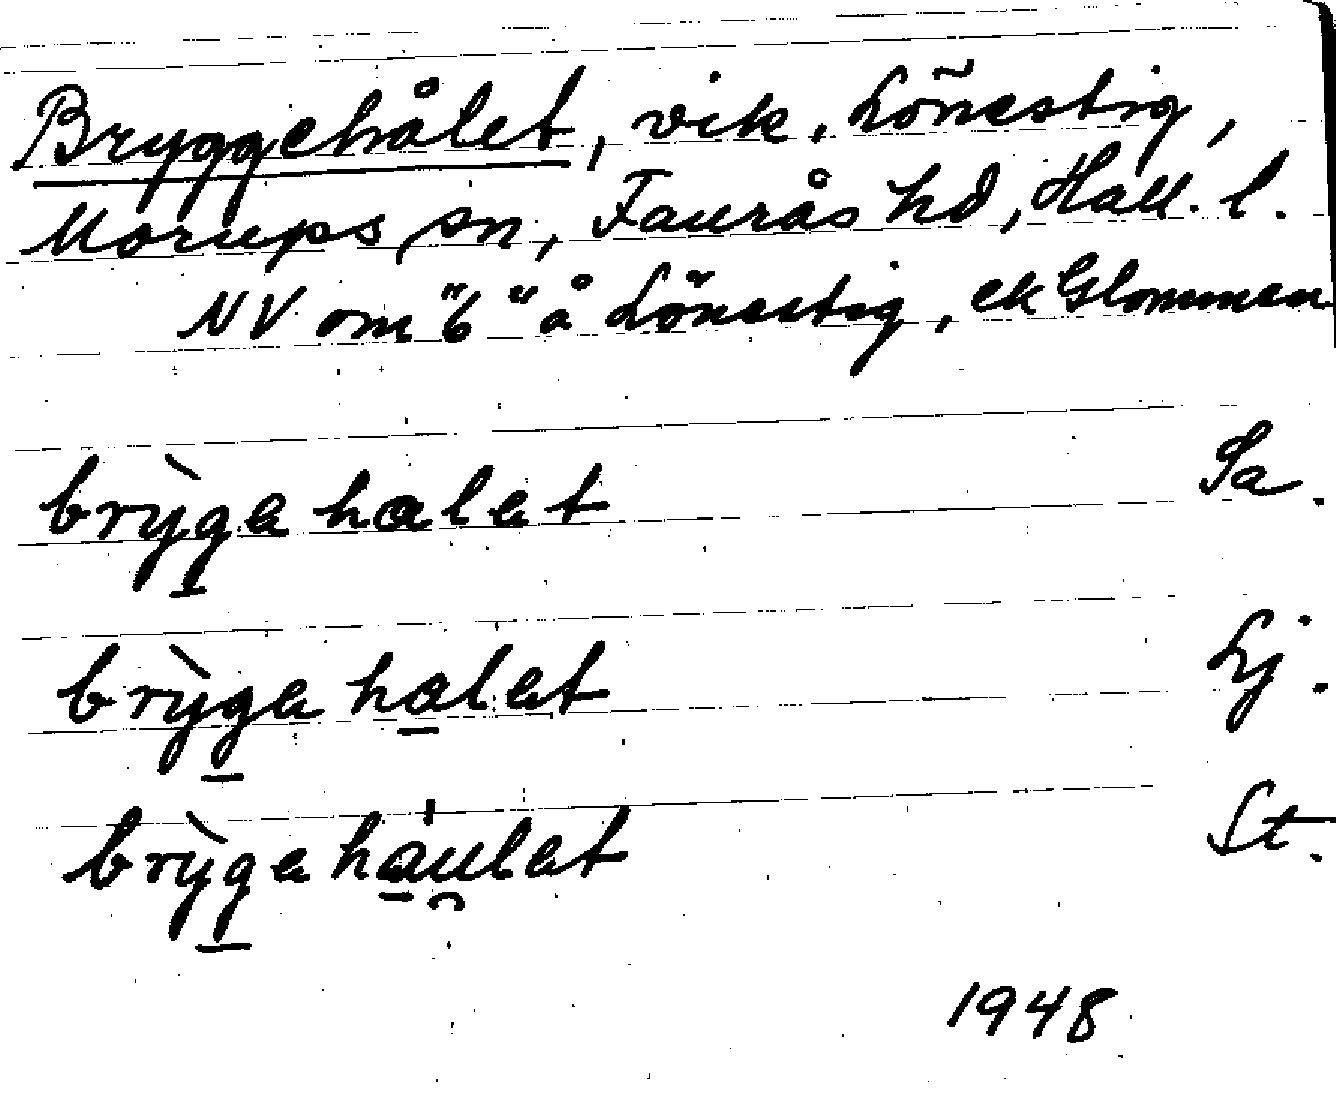 Bryggehålet, vik, Lönestig,
Morups sn, Faurås hd, Hall. l.
NV om "6" å Lönestig, ek Glommen
brỳg̲ehalet Sa.
brỳg̲eha̲let Lj.
brỳg̲eha̲u̯let St.
1948